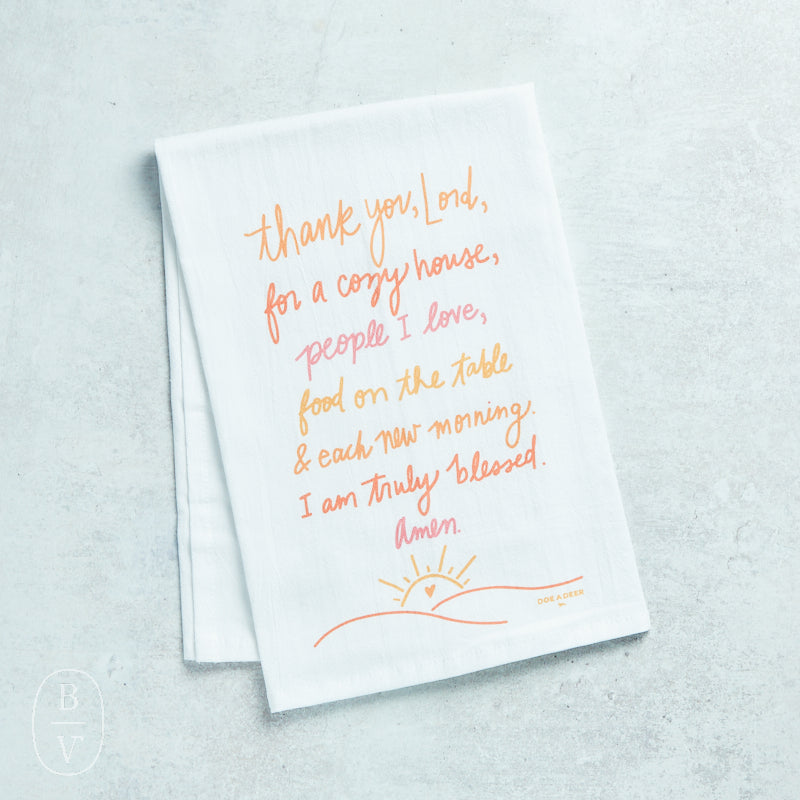 thank you, Lord,
for a cozy house,
people I love,
food on the table
& each new morning.
I am truly blessed.
Amen.
DOE A DEER
B
V